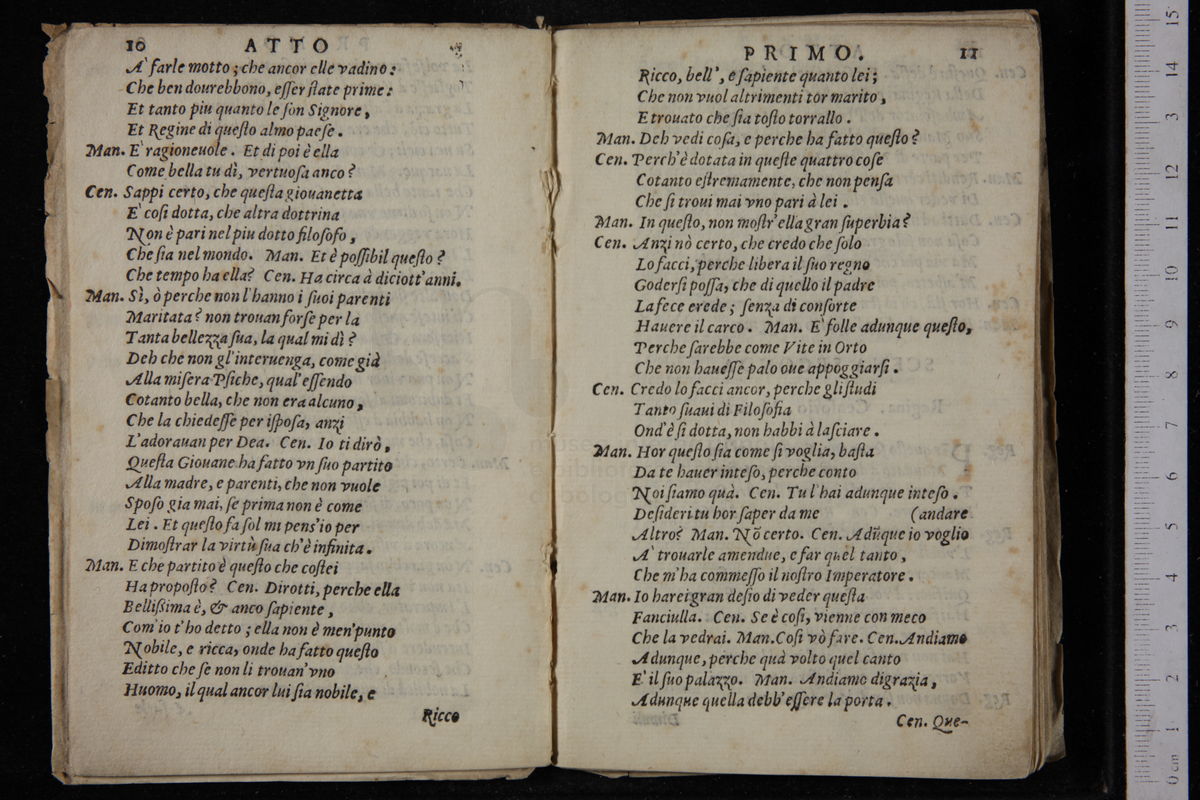 10 ATTO
A' farle motto; che ancor elle vadino:
Che ben dourebbono, esser state prime:
Et tanto piu quanto le son Signore,
Et Regine di questo almo paese.
Man. E' ragioneuole. Et di poi è ella
Come bella tu dì, vertuosa anco?
Cen. Sappi certo, che questa giouanetta
E' cosi dotta, che altra dottrina
Non è pari nel piu dotto filosofo,
Che sia nel mondo. Man. Et è possibil questo?
Che tempo ha ella? Cen. Ha circa à diciott'anni.
Man. Sì, ò perche non l'hanno i suoi parenti
Maritata? non trouan forse per la
Tanta bellezza sua, la qual mi dì?
Deh che non gl'interuenga, come già
Alla misera Psiche, qual'essendo
Cotanto bella, che non era alcuno,
Che la chiedesse per isposa, anzi
L'adorauan per Dea. Cen. Io ti dirò,
Questa Giouane ha fatto vn suo partito
Alla madre, e parenti, che non vuole
Sposo gia mai, se prima non è come
Lei. Et questo fa sol mi pens'io per
Dimostrar la virtù sua ch'è infinita.
Man. E che partito è questo che costei
Ha proposto? Cen. Dirotti, perche ella
Bellissima è, & anco sapiente,
Com'io t'ho detto; ella non è men'punto
Nobile, e ricca, onde ha fatto questo
Editto che se non li trouan'vno
Huomo, il qual ancor lui sia nobile, e
Ricco
PRIMO. 11
Ricco, bell', e sapiente quanto lei;
Che non vuol altrimenti tor marito,
E trouato che sia tosto torrallo.
Man. Deh vedi cosa, e perche ha fatto questo?
Cen. Perch'è dotata in queste quattro cose
Cotanto estremamente, che non pensa
Che si troui mai vno pari à lei.
Man. In questo, non mostr'ella gran superbia?
Cen. Anzi nò certo, che credo che solo
Lo facci, perche libera il suo regno
Godersi possa, che di quello il padre
La fece erede; senza di consorte
Hauere il carco. Man. E' folle adunque questo,
Perche sarebbe come Vite in Orto
Che non hauesse palo oue appoggiarsi.
Cen. Credo lo facci ancor, perche gli studi
Tanto suaui di Filosofia
Ond'è si dotta, non habbi à lasciare.
Man. Hor questo sia come si voglia, basta
Da te hauer inteso, perche conto
Noi siamo quà. Cen. Tu l'hai adunque inteso.
Desideri tu hor saper da me (andare
Altro? Man. Nõ certo. Cen. Adũque io voglio
A' trouarle amendue, e far quel tanto,
Che m'ha commesso il nostro Imperatore.
Man. Io harei gran desio di veder questa
Fanciulla. Cen. Se è cosi, vienne con meco
Che la vedrai. Man. Cosi vò fare. Cen. Andiamo
Adunque, perche quà volto quel canto
E' il suo palazzo. Man. Andiamo di grazia,
Adunque quella debb'essere la porta.
Cen. Que-